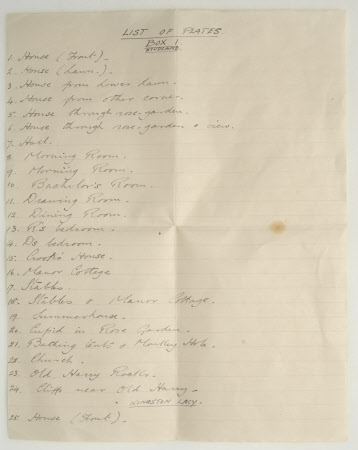 LIST OF PLATES
BOX 1.
STUDLAND.
1. House (Front).
2. House (Lawn.)
3 House from lower lawn.
4. House from other corner.
5. House through rose-garden.
6. House through rose-garden & view.
7. Hall.
8. Morning Room.
9. Morning Room.
10. Bachelor's Room.
11. Drawing Room.
12. Dining Room.
13. R's bedroom.
14. D's bedroom.
15. House.
16. Manor Cottage
17. Stables.
18. Stables & Manor Cottage.
19. Summerhouse.
20. Cupid in Rose Garden.
21. Bathing tents & Monkey Hole.
22. Church.
23. Old Harry Rocks.
24. Cliffs near Old Harry.
KINGSTON LACY.
25. House (Front).